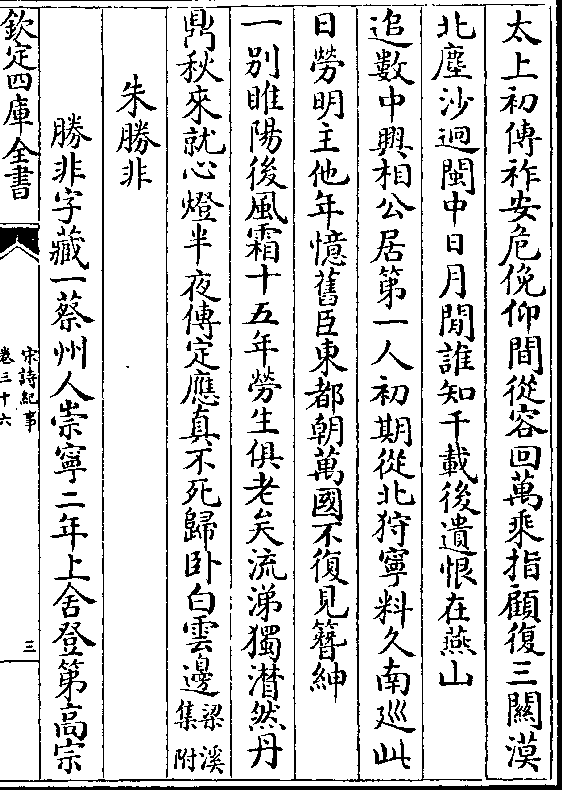 太上初傳祚安危俛仰間從容回萬乘指顧復三關漠
北塵沙迥閩中日月閒誰知千載後遺恨在燕山
追數中興相公居第一人初期從北狩寧料久南廵此
日勞明主他年憶舊臣東都朝萬國不復見簪紳
一别睢陽後風霜十五年勞生俱老矣流涕獨潸然丹
鼎秋來就心燈半夜傳定應真不死歸卧白雲邊梁溪集附
朱勝非
勝非字藏一蔡州人崇寧二年上舍登第高宗
欽定四庫全書
宋詩紀事
卷三十六
三